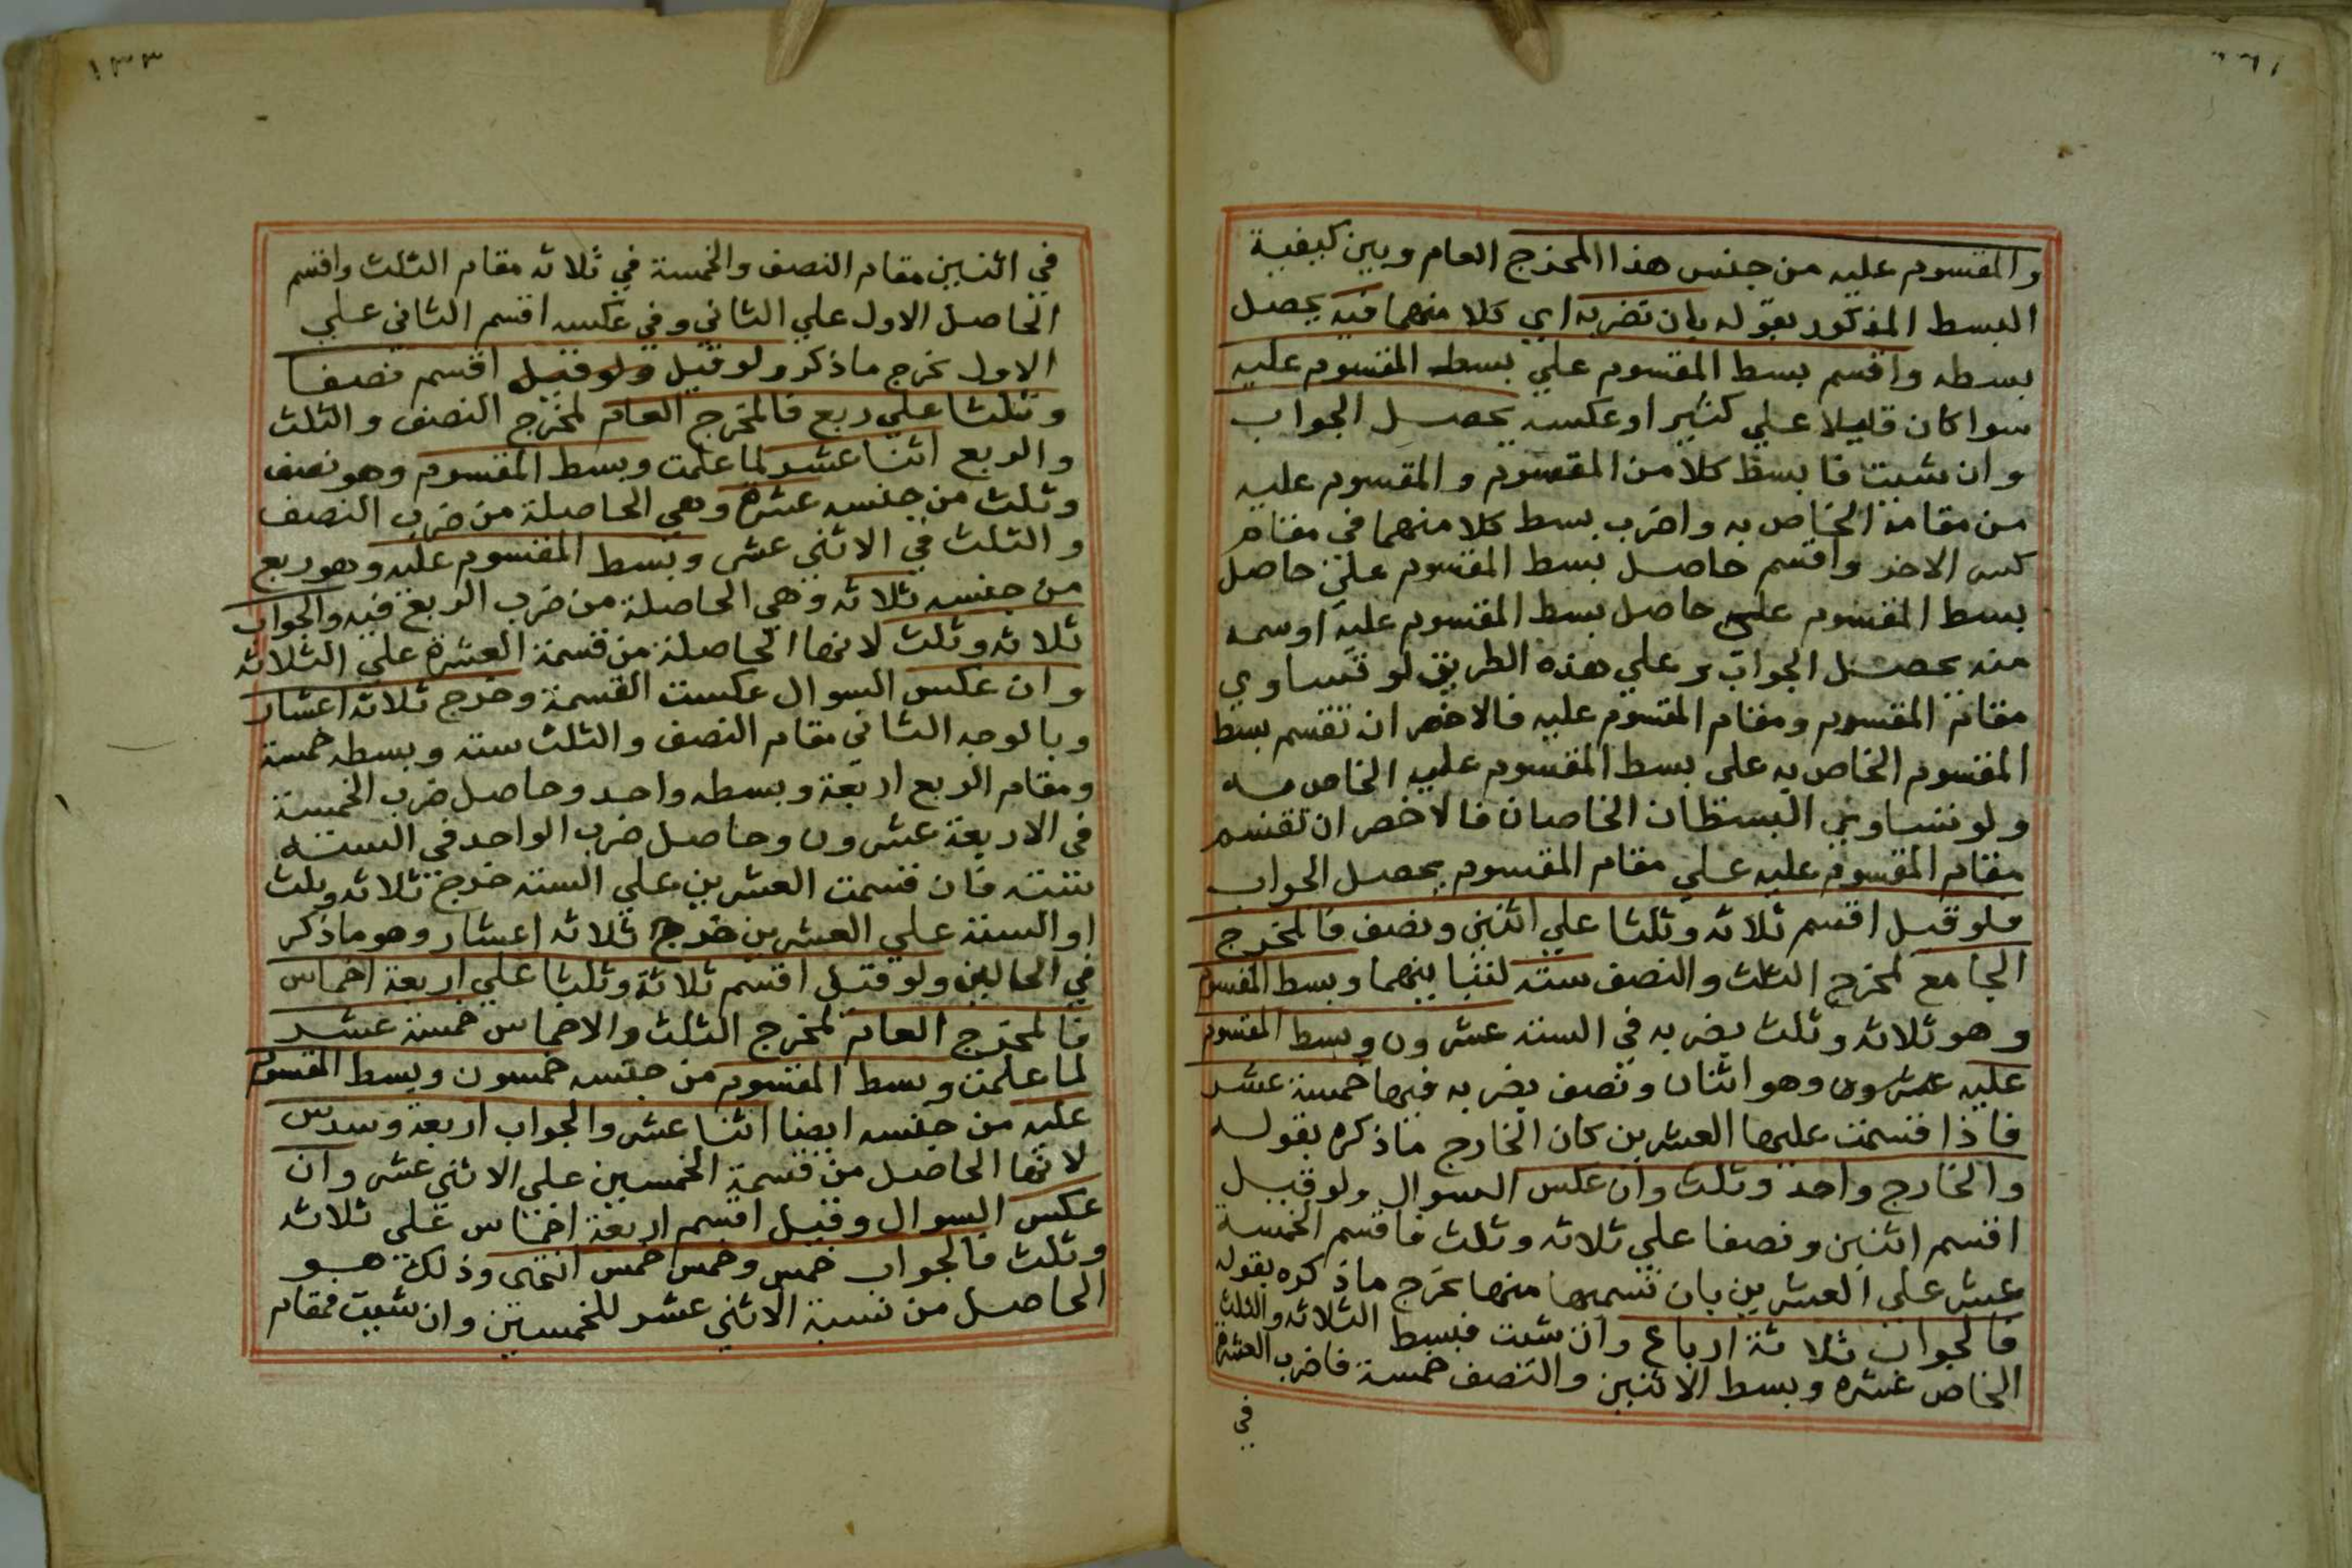 والمقسوم عليه من جنس هذا المخرج العام وبين كيفية
البسط المذكور بقوله بان تضربه اي كلا منهما فيه يحصل
بسطه واقسم بسط المقسوم علي بسط المقسوم عليه
سوا كان قليلا علي كثير او عكسه يحصل الجواب
وان شيت فابسط كلا من المقسوم والمقسوم عليه
من مقامه الخاص به واضرب بسط كلا منهما في مقام
كسر الاخر واقسم حاصل بسط المقسوم علي حاصل
بسط المقسوم علي حاصل بسط المقسوم عليه او سمه
منه يحصل الجواب وعلي هذه الطريق لو تساوي
مقام المقسوم ومقام المقسوم عليه فالاخصر ان تقسم بسط
المقسوم الخاص به على بسط المقسوم عليه الخاص به
ولو تساوي البسطان الخاصان فالاخصر ان تقسم
مقام المقسوم عليه علي مقام المقسوم يحصل الجواب
فلو قيل اقسم ثلاثه وثلثا علي اثنين ونصف فالمخرج
الجامع لمخرج الثلث والنصف سته لتباينهما وبسط المقسوم
وهو ثلاثه وثلث يضربه في السته عشرون وبسط المقسوم
عليه عشرون وهو اثنان ونصف يضربه فيها خمسة عشر
فاذا قسمت عليها العشرين كان الخارج ماذكره بقوله
والخارج واحد وثلث وان عكس السوال ولو قيل
اقسم اثنين ونصفا علي ثلاثه وثلث فاقسم الخمسة
عشر علي العشرين بان تسميها منها يخرج ماذكره بقوله
فالجواب ثلاثة ارباع وان شيت فبسط الثلاثه والثلث
الخاص عشره وبسط الاثنين والنصف خمسة فاضرب العشرة
في
١٣٣
في اثنين مقام النصف والخمسة في ثلاثه مقام الثلث واقسم
الحاصل الاول علي الثاني وفي عكسه اقسم الثاني علي
الاول يخرج ماذكر ولو قيل ولو قيل اقسم نصفا
وثلثا علي ربع فالمخرج العام لمخرج النصف والثلث
والربع اثنا عشر لما علمت وبسط المقسوم وهو نصف
وثلث من جنسه عشرة وهي الحاصلة من ضرب النصف
والثلث في الاثني عشر وبسط المقسوم عليه وهو ربع
من جنسه ثلاثه وهي الحاصلة من ضرب الربع فيه والجواب
ثلاثه وثلث لانها الحاصلة من قسمة العشرة علي الثلاثه
وان عكس السوال عكست القسمة وخرج ثلاثه اعشار
وبالوجه الثاني مقام النصف والثلث سته وبسطه خمسة
ومقام الربع اربعة وبسطه واحد وحاصل ضرب الخمسة
في الاربعة عشرون وحاصل ضرب الواحد في السته
سته فان قسمت العشرين علي السته خرج ثلاثه وثلث
او السته علي العشرين خرج ثلاثه اعشار وهو ماذكر
في الحالين ولو قيل اقسم ثلاثة وثلثا علي اربعة اخماس
فالمخرج العام لمخرج الثلث والاخماس خمسة عشر
لما علمت وبسط المقسوم من جنسه خمسون وبسط المقسوم
عليه من جنسه ايضا اثنا عشر والجواب اربعة وسدس
لانها الحاصل من قسمة الخمسين علي الاثني عشر وان
عكس السوال وقيل اقسم اربعة اخماس علي ثلاثه
وثلث فالجواب خمس وخمس خمس انتهى وذلك هو
الحاصل من نسبة الاثني عشر للخمسين وان شيت فمقام